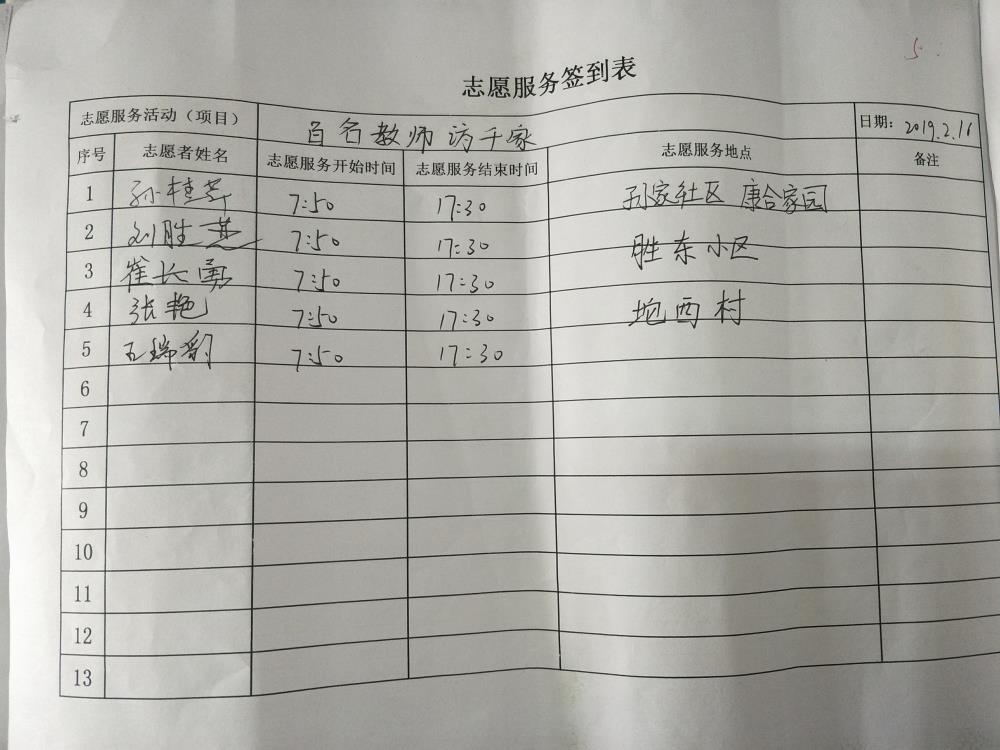 5
志愿服务签到表
志愿服务活动（项目） 百名教师访千家 日期：2019.2.16
序号 志愿者姓名 志愿服务开始时间 志愿服务结束时间 志愿服务地点 备注
1 孙桂芹 7:50 17:30 孙家社区 康合家园
2 刘胜 7:50 17:30 胜东小区
3 崔长勇 7:50 17:30
4 张艳 7:50 17:30 坨西村
5 王瑞 7:50 17:30
6
7
8
9
10
11
12
13